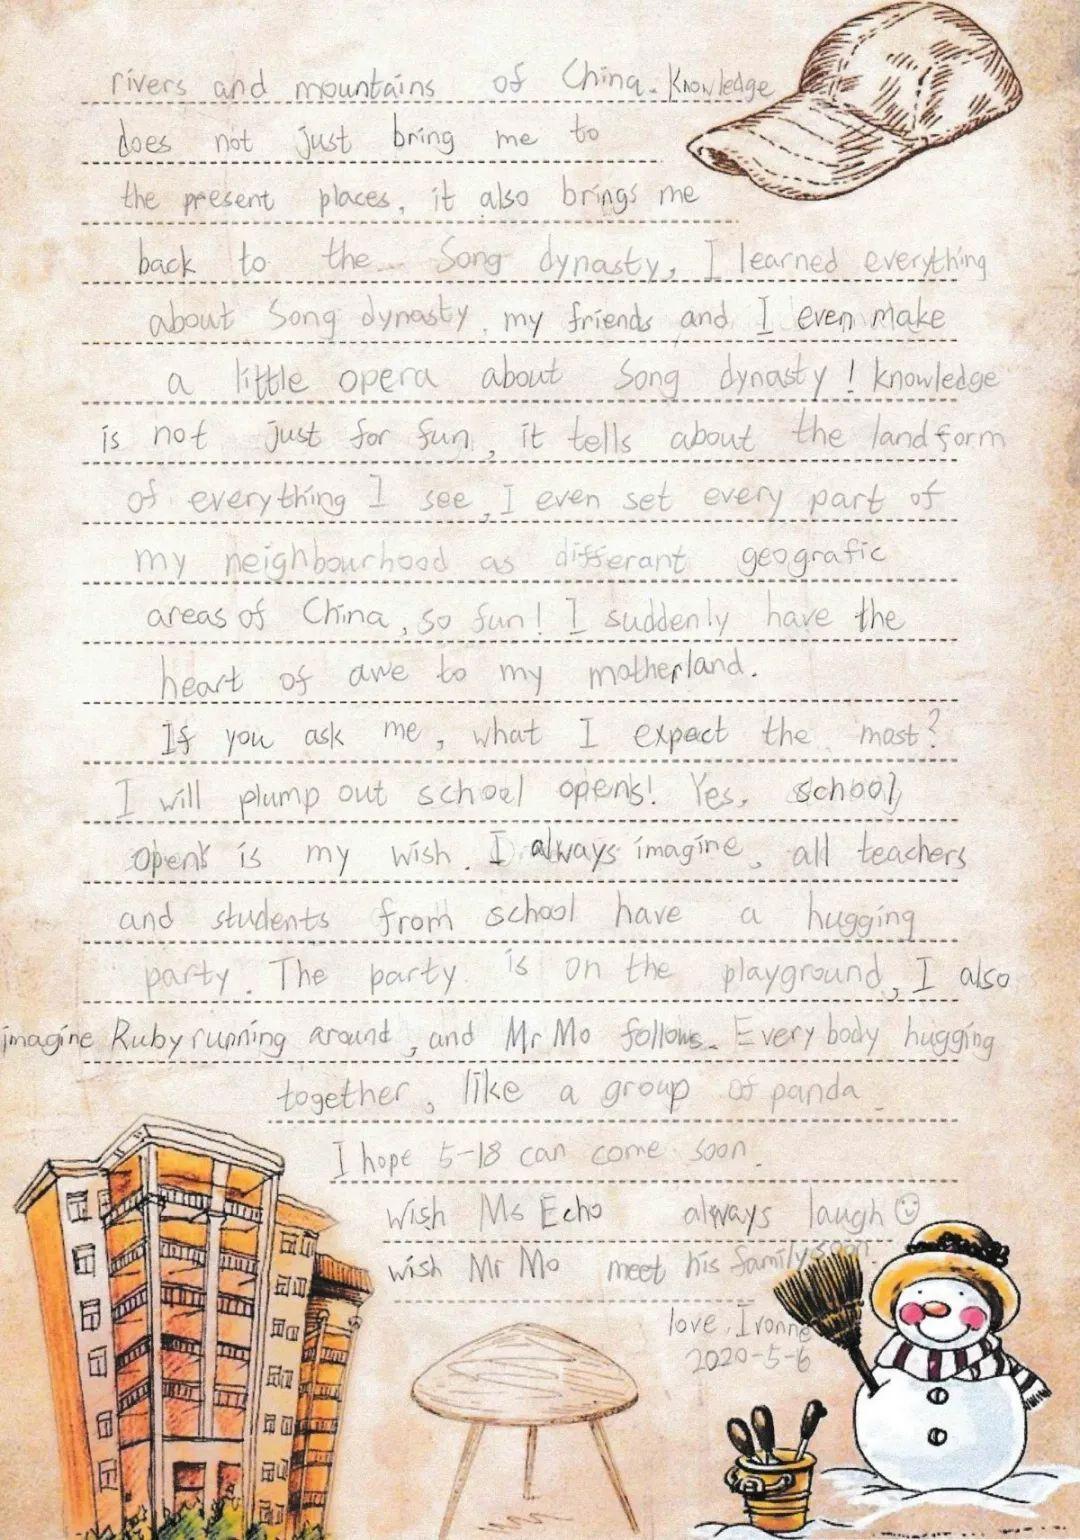 rivers and mountains of China. Knowledge
does not just bring me to
the present places, it also brings me
back to the Song dynasty, I learned everything
about Song dynasty, my friends and I even make
a little opera about Song dynasty! knowledge
is not just for fun, it tells about the landform
of everything I see, I even set every part of
my neighbourhood as differant geografic
areas of China, so fun! I suddenly have the
heart of awe to my motherland.
If you ask me, what I expect the most?
I will plump out school opens! Yes, school
opens is my wish. I always imagine, all teachers
and students from school have a hugging
party. The party is on the playground, I also
imagine Ruby running around, and Mr Mo follows. Every body hugging
together, like a group of panda.
I hope 5-18 can come soon.
wish Ms Echo always laugh ☺
wish Mr Mo meet his family soon.
love, Ivonne
2020-5-6